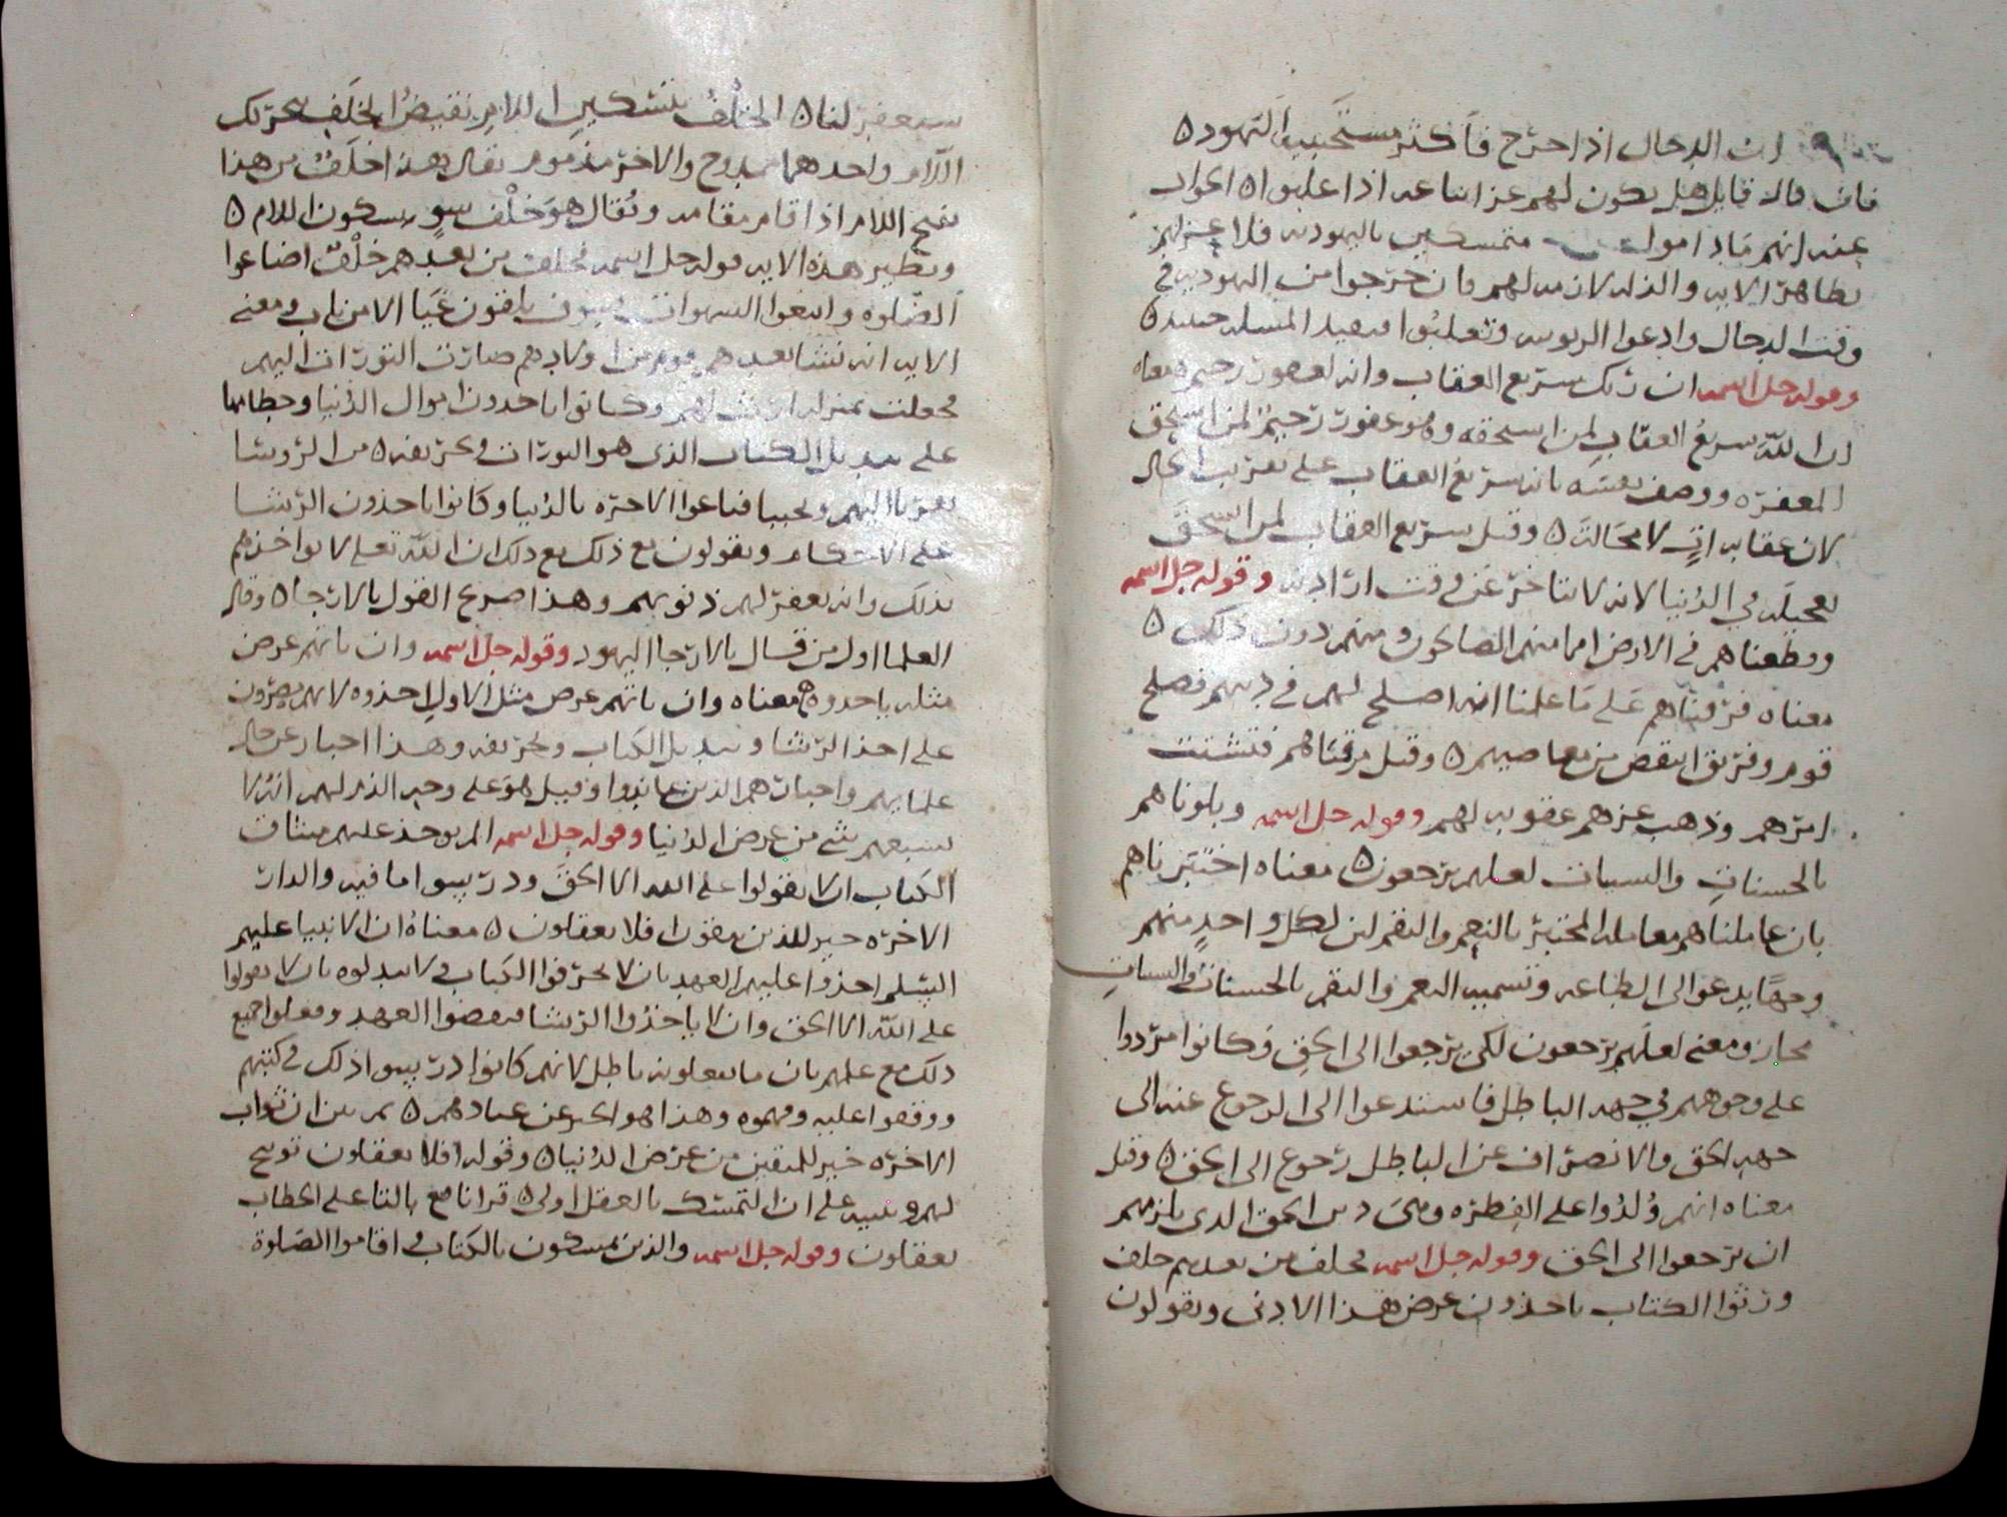 ان الدجال اذا خرج فاكثر مستجيبيه اليهود ه
فان قال قايل هل يكون لهم عز اتباعه اذا غلبوا ه الجواب
عنه انهم ما داموا متمسكين باليهودية فلا عز لهم
بظاهر الاية والذلة لازمة لهم وان خرجوا من اليهودية في
وقت الدجال وادعوا الربوبية وتغلبوا فبعيد المسلة حينيذ ه
وقوله جل اسمه ان ربك سريع العقاب وانه لغفور رحيم ه معناه
ان الله سريع العقاب لمن استحقه وهو غفور رحيم لمن استحق
المغفرة ووصف نفسه بانه سريع العقاب على تقريب الحال
لان عقابه ات لا محالة ه وقيل سريع العقاب لمن استحق
تعجيله في الدنيا لانه لا يتاخر عن وقت ارادته وقوله جل اسمه
وقطعناهم في الارض امما منهم الصالحون ومنهم دون ذلك ه
معناه فرقناهم على ما علمنا انه اصلح لهم في دينهم فصلح
قوم وفريق انقص من معاصيهم ه وقيل فرقناهم فتشتت
امرهم وذهب عزهم عقوبة لهم وقوله جل اسمه وبلوناهم
بالحسنات والسيات لعلهم يرجعون ه معناه اختبرناهم
بان عاملناهم معاملة المختبر بالنعم والنقم لان لكل واحد منهم
وجها يدعو الى الطاعة وتسمية النعم والنقم بالحسنات والسيات
مجاز ومعنى لعلهم يرجعون لكي يرجعوا الى الحق وكانوا مردوا
على وجوههم في جهة الباطل فاستدعوا الى الرجوع عنه الى
جهة الحق والانصراف عن الباطل رجوع الى الحق ه وقيل
معناه انهم ولدوا على الفطرة وهي دين الحق الذي يلزمهم
ان يرجعوا الى الحق وقوله جل اسمه فخلف من بعدهم خلف
ورثوا الكتاب ياخذون عرض هذا الادنى ويقولون
سيغفر لنا ه الخلف بتسكين اللام نقيض الخلف بتحريك
اللام واحدهما ممدوح والاخر مذموم يقال هذا خلف من هذا
بفتح اللام اذا قام مقامه ويقال هو خلف سو بسكون اللام ه
ونظير هذه الاية قوله جل اسمه فخلف من بعدهم خلف اضاعوا
الصلوة واتبعوا الشهوات فسوف يلقون غيا الا من تاب ومعنى
الاية انه نشا بعدهم قوم من اولادهم صارت التورات اليهم
فجعلت بمنزلة ارث لهم وكانوا ياخذون اموال الدنيا وحطامها
على تبديل الكتاب الذي هو التورات وتحريفه ه من الروسا
تقربا اليهم وتحببا فباعوا الاخرة بالدنيا وكانوا ياخذون الرشا
على الاحكام ويقولون مع ذلك مع ذلك ان الله تعلى لا يواخذهم
بذلك وانه يغفر لهم ذنوبهم وهذا صريح القول بالارجا ه وقال
العلما اول من قال بالارجا اليهود وقوله جل اسمه وان ياتهم عرض
مثله ياخذوه ه معناه وان ياتهم عرض مثل الاول اخذوه لانهم يصرون
على اخذ الرشا وتبديل الكتاب وتحريفه وهذا اخبار عن حال
علمايهم واحبارهم الذين عاندوا وقيل هو على وجه الذم لهم انه لا
يشبعهم شي من عرض الدنيا وقوله جل اسمه الم يوخذ عليهم ميثاق
الكتاب ان لا يقولوا على الله الا الحق ودرسوا ما فيه والدار
الاخرة خير للذين يتقون افلا يعقلون ه معناه ان الانبيا عليهم
السلم اخذوا عليهم العهد بان لا يحرفوا الكتاب ولا يبدلوه بان لا يقولوا
على الله الا الحق وان لا ياخذوا الرشا فنقضوا العهد وفعلوا جميع
ذلك مع علمهم بان ما يفعلونه باطل لانهم كانوا درسوا ذلك في كتبهم
ووقفوا عليه وفهموه وهذا هو الخبر عن عنادهم ه ثم بين ان ثواب
الاخرة خير للمتقين من عرض الدنيا ه وقوله افلا يعقلون توبيخ
لهم وتنبيه على ان التمسك بالعقل اولى ه قرا نافع بالتا على الخطاب
يعقلون وقوله جل اسمه والذين يمسكون بالكتاب واقاموا الصلوة